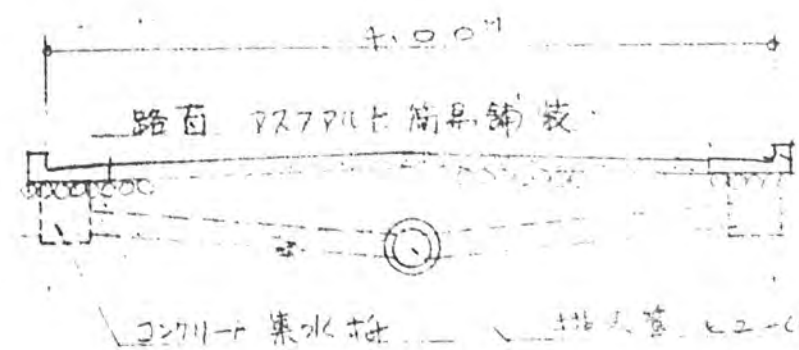 4.00M
路面 アスファルト簡易舗装
コンクリート集水桝 排水管 ヒュー